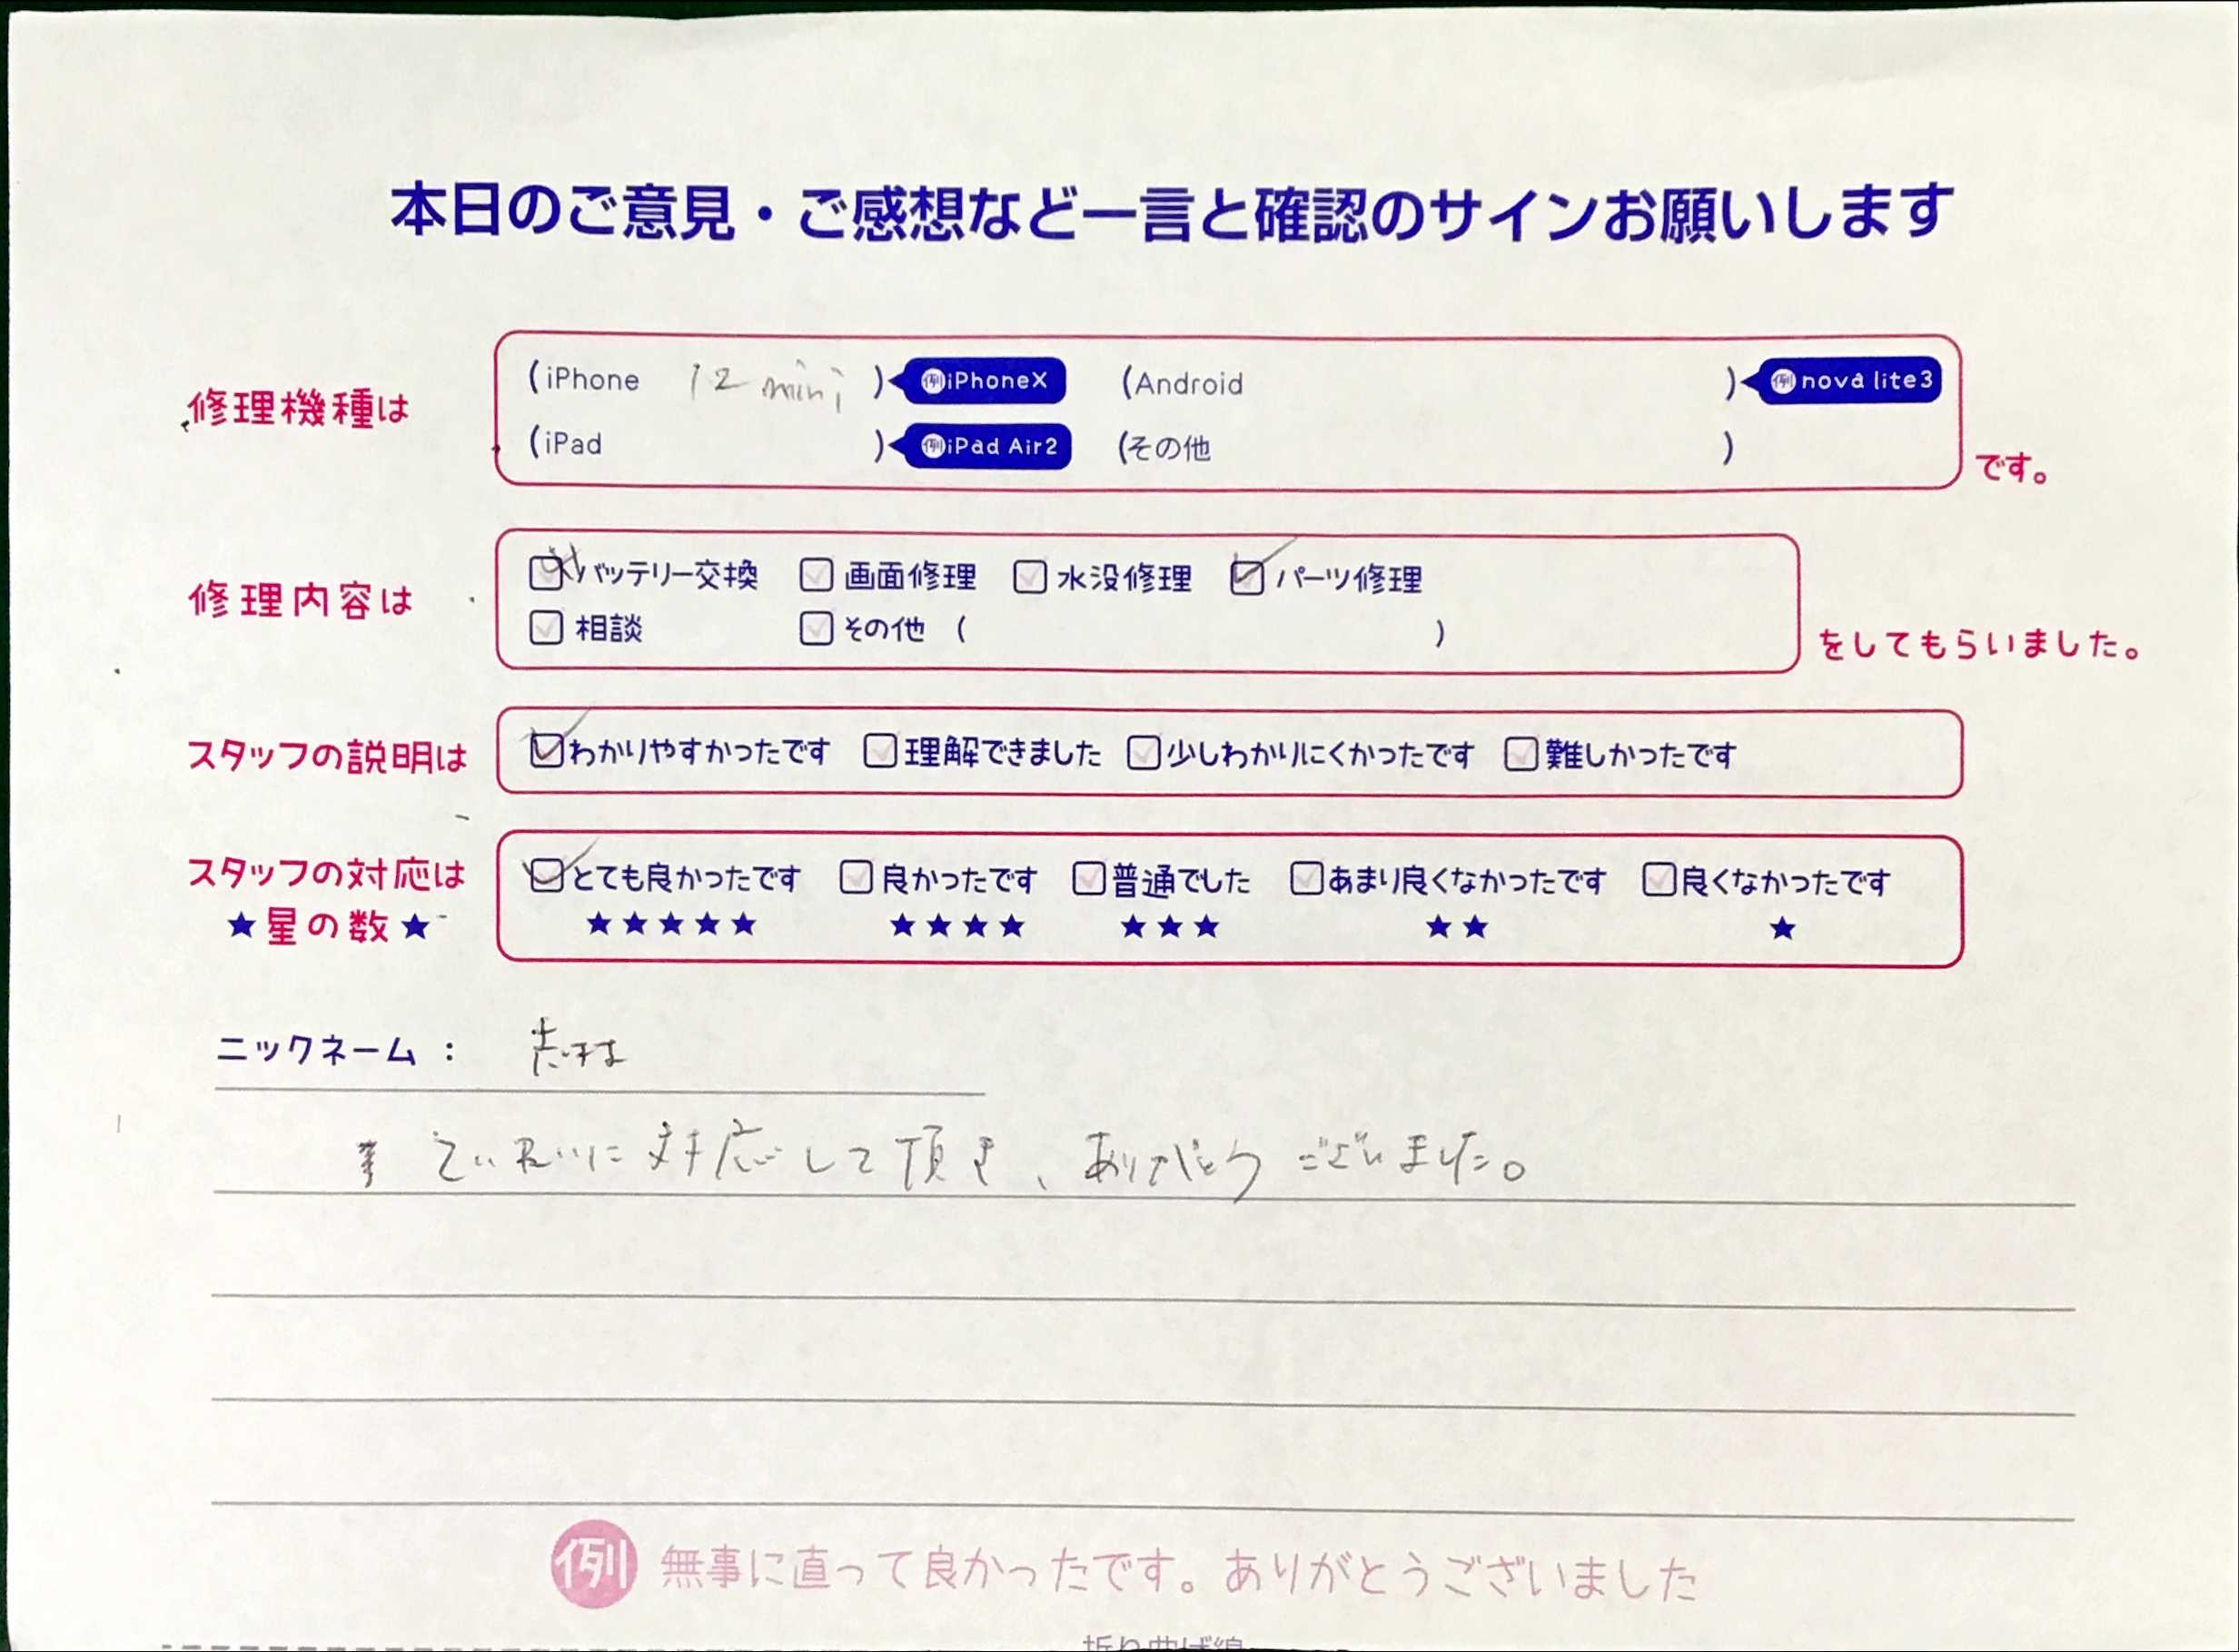 本日のご意見・ご感想など一言と確認のサインお願いします
修理機種は (iPhone 12 mini ) 例iPhoneX (Android ) 例nova lite3
(iPad ) 例iPad Air2 (その他 ) です。
修理内容は バッテリー交換 画面修理 水没修理 パーツ修理
相談 その他 ( ) をしてもらいました。
スタッフの説明は わかりやすかったです 理解できました 少しわかりにくかったです 難しかったです
スタッフの対応は とても良かったです 良かったです 普通でした あまり良くなかったです 良くなかったです
★星の数★ ★★★★★ ★★★★ ★★★ ★★ ★
ニックネーム：
ていねいに対応して頂き、ありがとうございました。
例 無事に直って良かったです。ありがとうございました
折り曲げ線